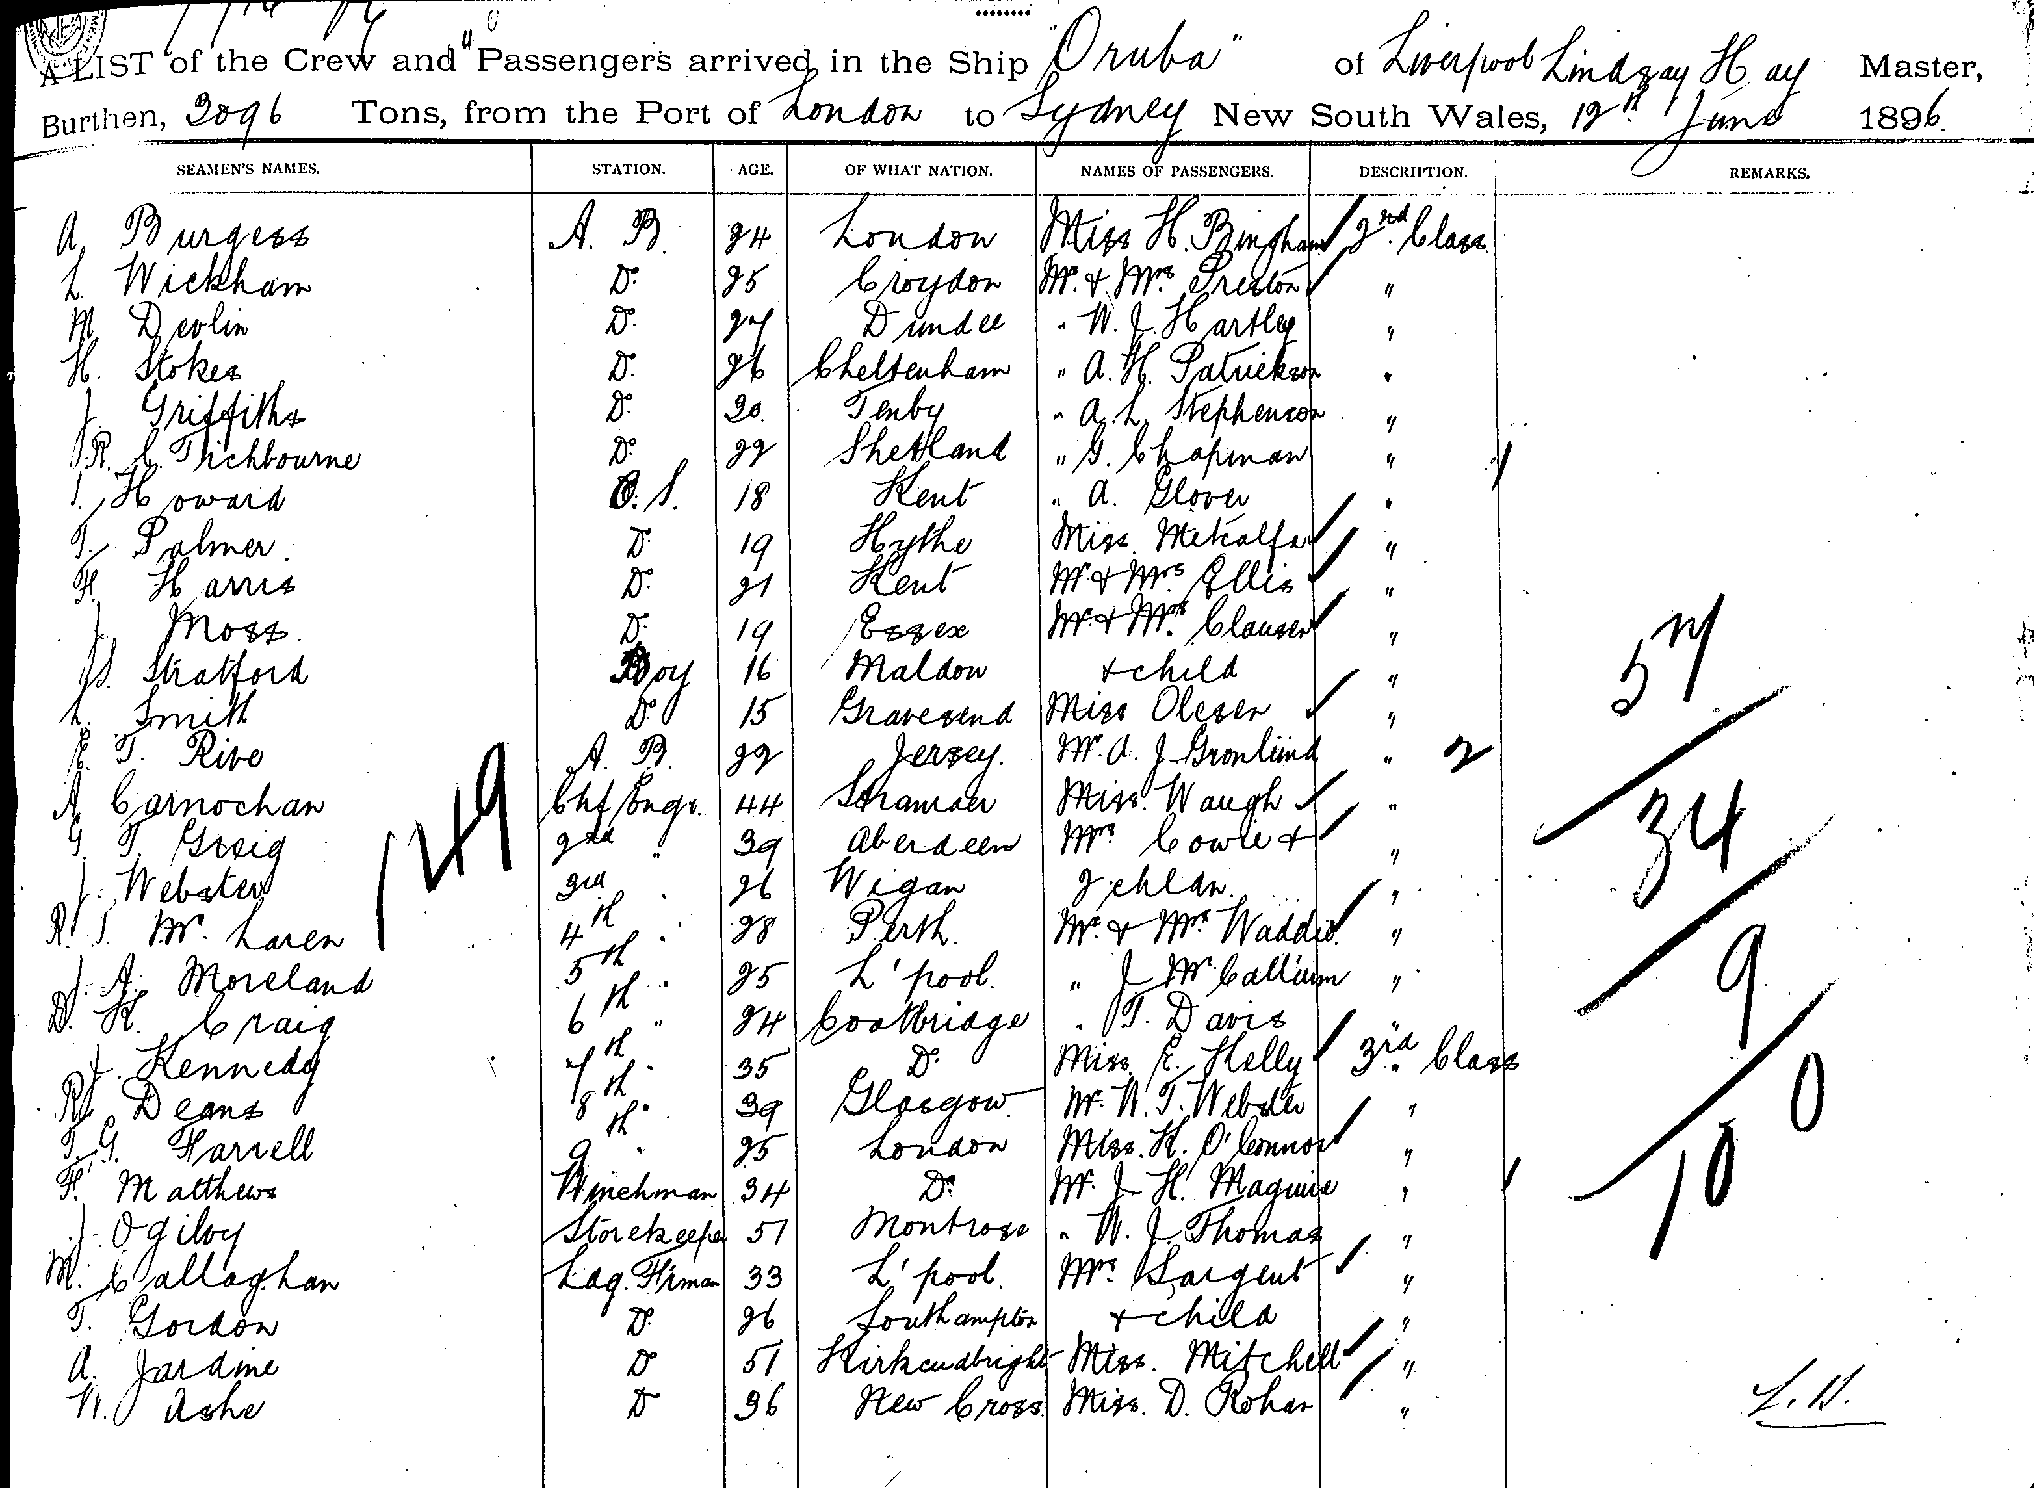 A LIST of the Crew and Passengers arrived in the Ship "Oruba" of Liverpool Lindsay Hay Master,
Burthen, 3096 Tons, from the Port of London to Sydney New South Wales, 12th June 1896.
SEAMEN'S NAMES. STATION. AGE. OF WHAT NATION. NAMES OF PASSENGERS. DESCRIPTION. REMARKS.
A. Burgess A. B. 24 London Miss H. Bingham 2nd Class
L. Wickham Do. 25 Croydon Mr. & Mrs. Preston "
M. Devlin Do. 27 Dundee " W. J. Hartley "
H. Stokes Do. 26 Cheltenham " A. H. Patrickson "
J. Griffiths Do. 30 Tenby " A. L. Stephenson "
R. C. Tichbourne Do. 22 Shetland " G. Chapman "
T. Howard O. S. 18 Kent " A. Glover "
T. Palmer. Do. 19 Hythe Miss. Metcalfe "
F. Harris Do. 21 Kent Mr & Mrs Ellis "
J. Moss. Do. 19 Essex Mr. & Mrs. Clausen "
J. S. Stratford Boy 16 Maldon & child "
L. Smith Do. 15 Gravesend Miss Olesen "
E. T. Rive A. B. 22 Jersey. Mr. A. J. Gronlund " 2
A. Carnochan Chf Engr. 44 Stranraer Miss. Waugh "
G. T. Greig 2nd " 39 Aberdeen Mrs Cowie & "
J. Webster 3rd " 26 Wigan 2 chldn. "
R. T. Mc. Laren 4th " 28 Perth. Mr. & Mrs. Waddie. "
J. A. Moreland 5th " 25 L'pool. " J. Mc. Callum "
D. K. Craig 6th " 24 Coatbridge " T. Davis "
J. Kennedy 7th " 35 Do. Miss. E. Kelly 3rd Class
R. Deans 8th " 39 Glasgow. Mr. W. T. Webster "
T. G. Farrell 9th " 25 London Miss. K. O'Connor "
F. Matthews Winchman 34 Do. Mr. J. H. Maguire "
J. Ogilvy Storekeeper 51 Montrose " W. J. Thomas "
M. Callaghan Ldg. Firman 33 L'pool. Mrs. Sargent "
T. Gordon Do. 26 Southampton & child "
A. Jardine Do 51 Kirkcudbright Miss. Mitchell "
W. Ashe Do 36 New Cross. Miss. D. Rohan "
149
57
34
9
100
L. H.